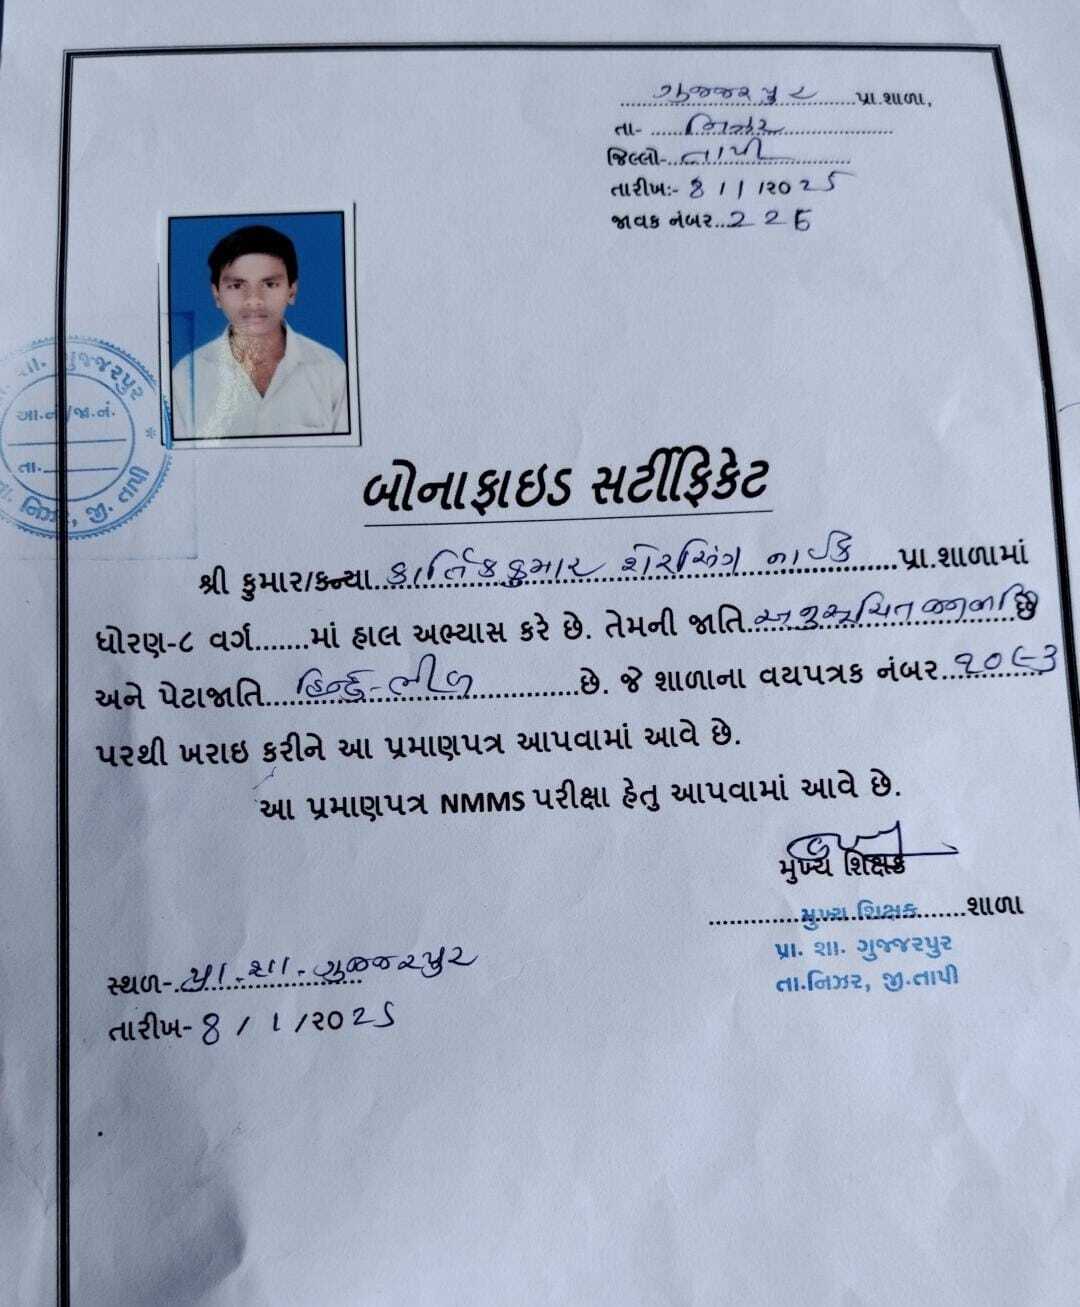 ગુજ્જરપુર પ્રા.શાળા,
તા- નિઝર
જિલ્લો- તાપી
તારીખ:- 8 / 1 /૨૦25
જાવક નંબર...226
પ્રા. શા. ગુજ્જરપુર
આ.નં/જા.નં.
તા.
તા. નિઝર, જી. તાપી
બોનાફાઇડ સર્ટીફિકેટ
શ્રી કુમાર/કન્યા..કાર્તિકકુમાર શેરસિંગ નાઈક.....પ્રા.શાળામાં
ધોરણ-૮ વર્ગ.......માં હાલ અભ્યાસ કરે છે. તેમની જાતિ.અનુસૂચિત જનજાતિ છે
અને પેટાજાતિ...હિન્દુ-ભીલ............છે. જે શાળાના વયપત્રક નંબર..૧૦૯૩
પરથી ખરાઇ કરીને આ પ્રમાણપત્ર આપવામાં આવે છે.
આ પ્રમાણપત્ર NMMS પરીક્ષા હેતુ આપવામાં આવે છે.
મુખ્ય શિક્ષક
મુખ્ય શિક્ષક.......શાળા
પ્રા. શા. ગુજ્જરપુર
તા.નિઝર, જી.તાપી
સ્થળ-.પ્રા.શા. ગુજ્જરપુર
તારીખ- 8 / 1 /૨૦25